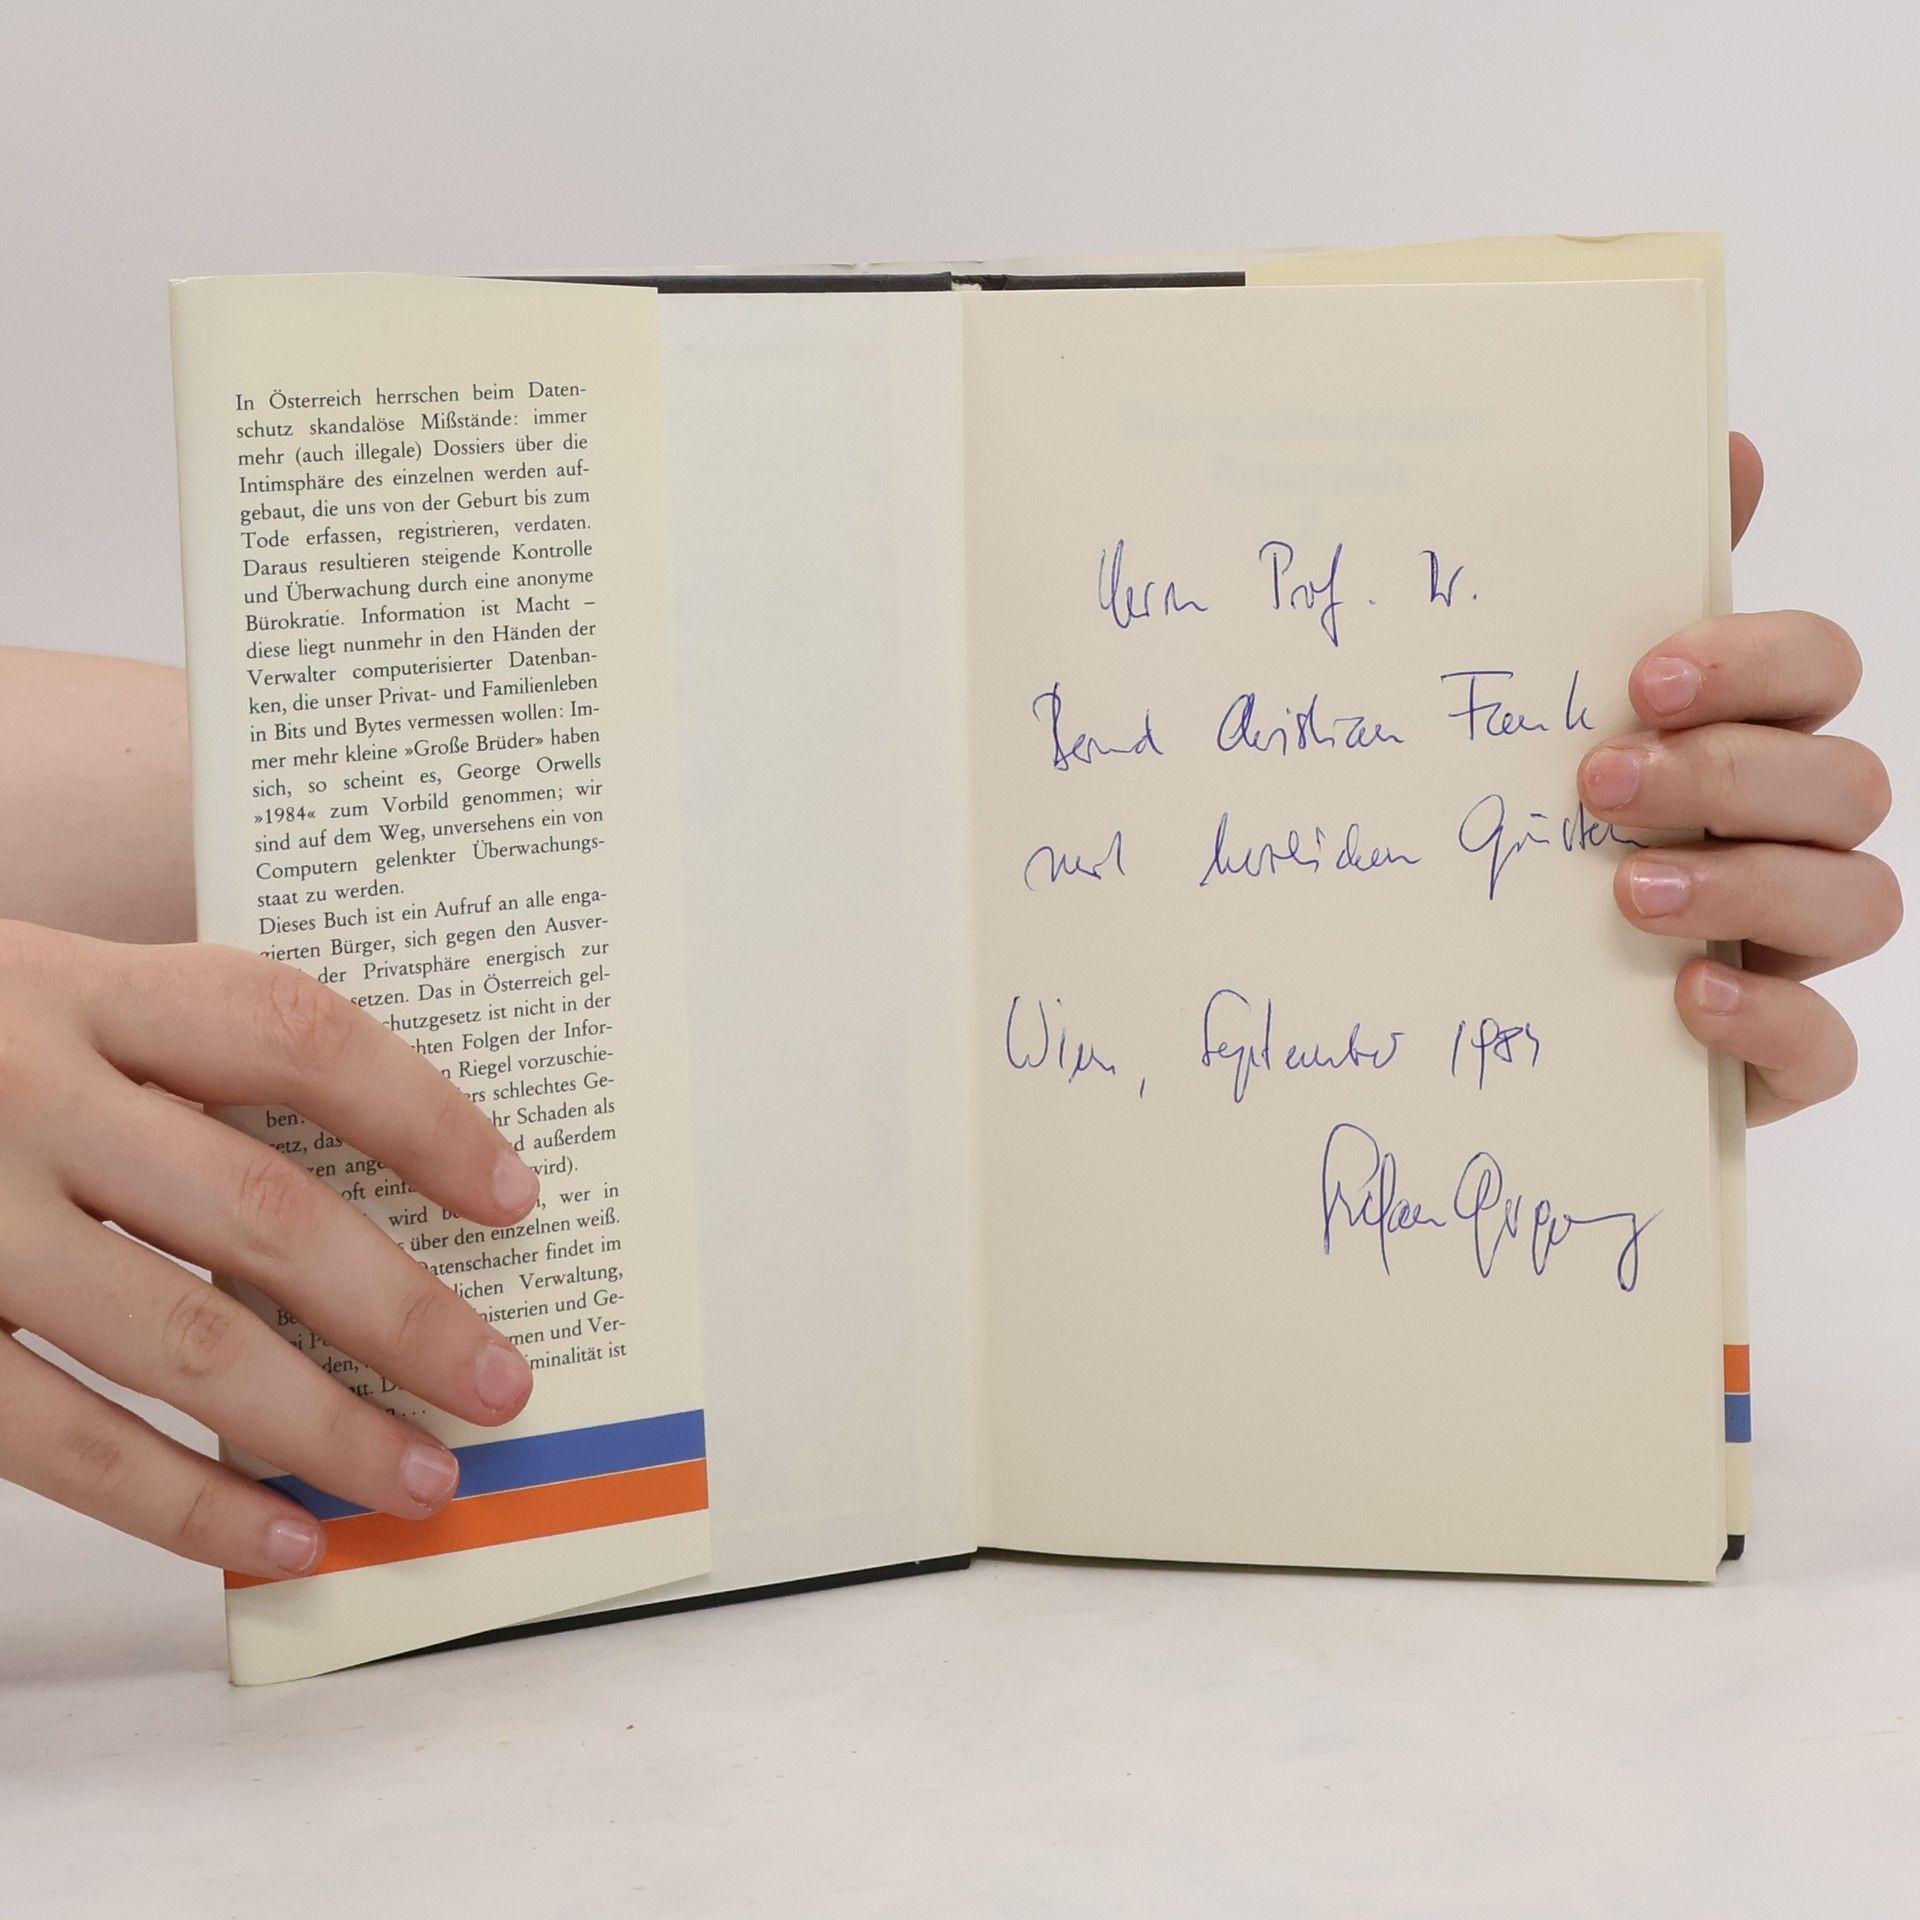 In Österreich herrschen beim Daten-
schutz skandalöse Mißstände: immer
mehr (auch illegale) Dossiers über die
Intimsphäre des einzelnen werden auf-
gebaut, die uns von der Geburt bis zum
Tode erfassen, registrieren, verdaten.
Daraus resultieren steigende Kontrolle
und Überwachung durch eine anonyme
Bürokratie. Information ist Macht –
diese liegt nunmehr in den Händen der
Verwalter computerisierter Datenban-
ken, die unser Privat- und Familienleben
in Bits und Bytes vermessen wollen: Im-
mer mehr kleine »Große Brüder» haben
sich, so scheint es, George Orwells
»1984« zum Vorbild genommen; wir
sind auf dem Weg, unversehens ein von
Computern gelenkter Überwachungs-
staat zu werden.
Dieses Buch ist ein Aufruf an alle enga-
gierten Bürger, sich gegen den Ausver-
der Privatsphäre energisch zur
setzen. Das in Österreich gel-
chutzgesetz ist nicht in der
hten Folgen der Infor-
n Riegel vorzuschie-
ben. ers schlechtes Ge-
setz, das hr Schaden als
zen ange d außerdem
oft einfa wird).
wird wer in
über den einzelnen weiß.
Datenschacher findet im
lichen Verwaltung,
Be nisterien und Ge-
ei Po men und Ver-
den, iminalität ist
tt. D
n...
Herrn Prof. Dr.
Bernd Christian Funk
mit herzlichen Grüßen
Wien, September 1984